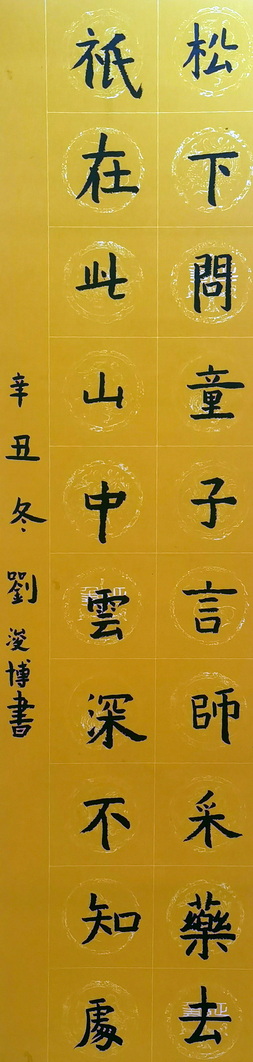 松下問童子言師采藥去
祇在此山中雲深不知處
辛丑冬劉浚博書